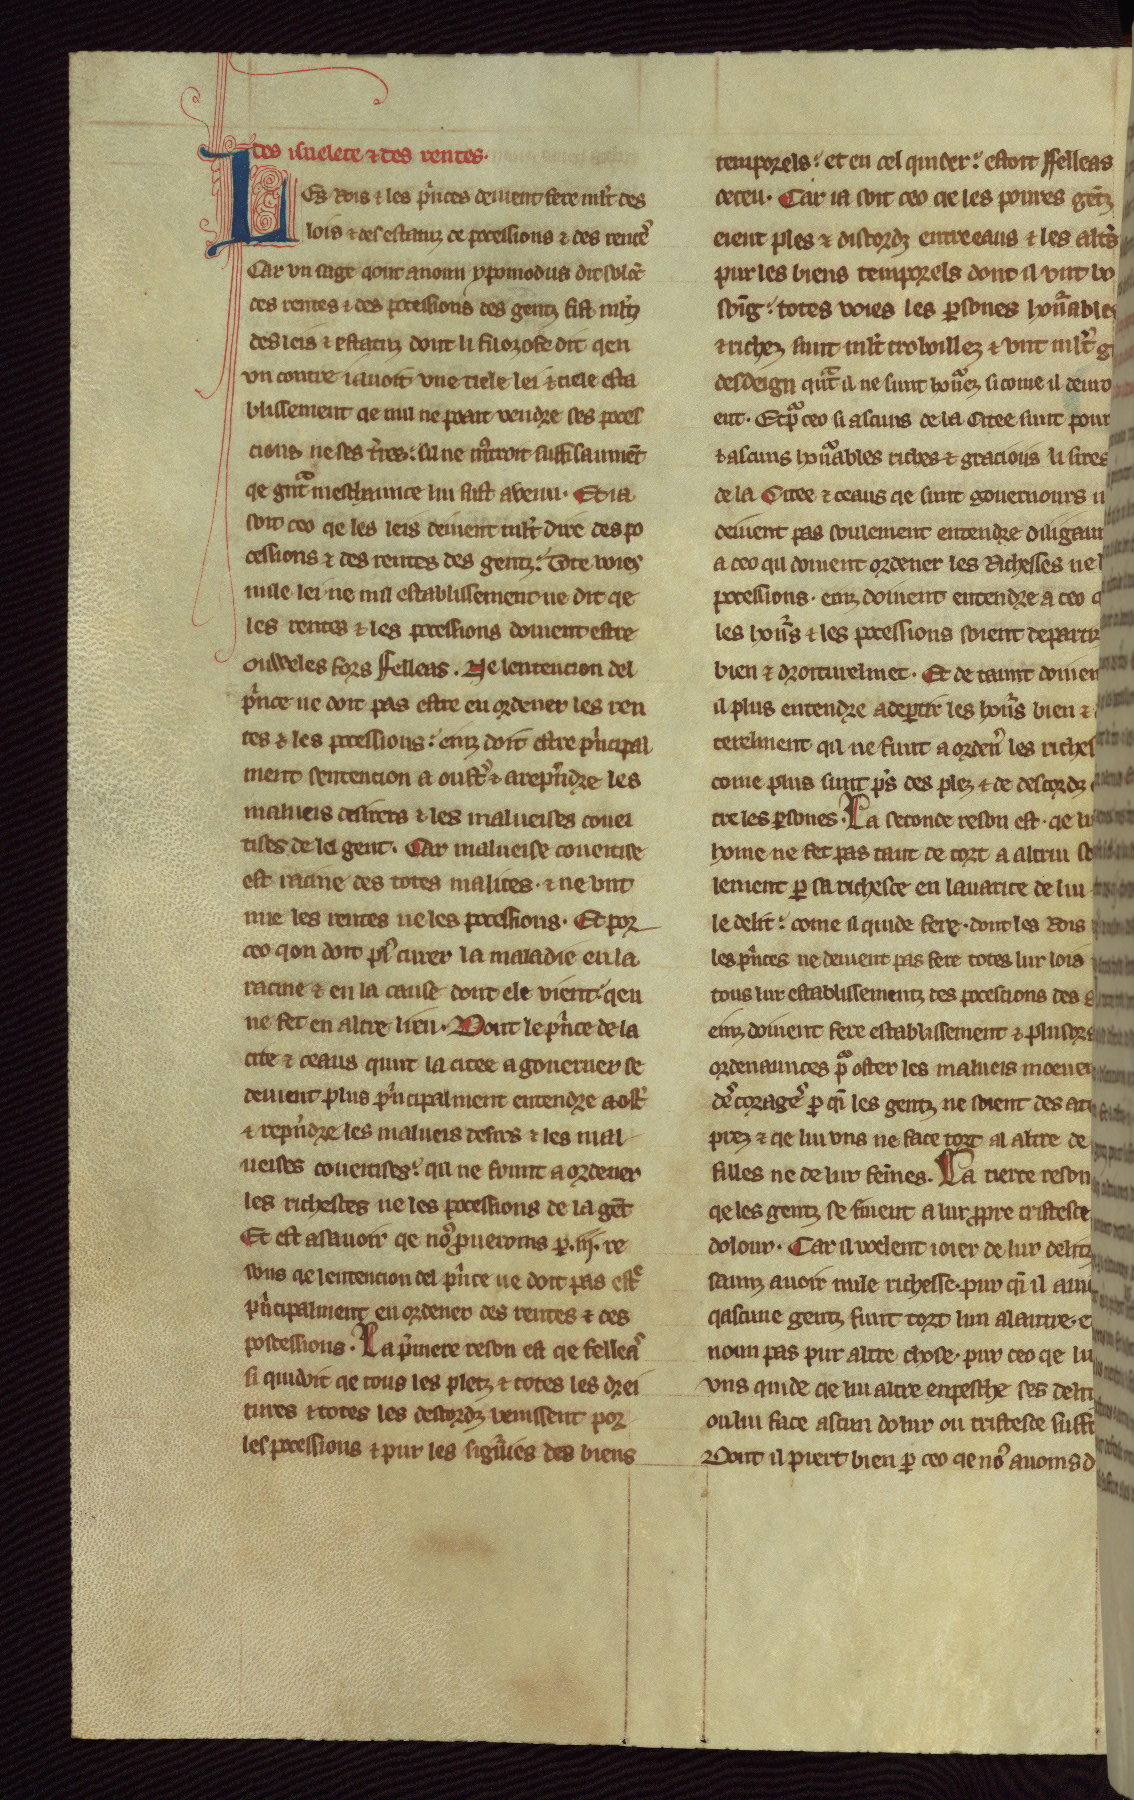 des iuelete & des rentes.
LEs Rois & les p̃nces deiuent fere ml̃t des
lois & des estatuz de pocessions & des rentẽ
Car vn sage qont a nom ypomodus dit
des rentes & des pocessions des gentz fist ml̃tz
des leis & estatuz dont li filozofe dit qen
vn contre iauoit vne tiele lei & tiele esta
blissement qe nul ne poait vendre ses poces
cions ne ses t̃res: sil ne mr̃roit suffisaument
qe gñt meschaunce lui fust auenu. Et ia
soit ceo qe les leis deiuent ml̃t dire des po
cessions & des rentes des gentz: Tote voies
nule lei ne nul establissement ne dit qe
les rentes & les pocessions doiuent estre
ouweles fors ffelleas. Ne lentencion del
p̃nce ne doit pas estre en ordener les ren
tes & les pocessions: einz doit estre p̃ncipal
ment sentencion a oustr̃ & a rep̃ndre les
malueis desirers & les malueises couei
tises de la gent. Car malueise coueitise
est racine des totes malices. & ne vnt
mie les rentes ne les pocessions. Et por
ceo qon doit pl᷒ curer la maladie en la
racine & en la cause dont ele vient: qen
ne fet en altre lieu. Dont le p̃nce de la
cite & ceaus quint la citee a gouerner se
deiuent plus p̃ncipalment entendre a ostr̃
& rep̃ndre les malueis desirs & les mal
ueises coueitises: qil ne funt a ordener
les richesces ne les pocessions de la gẽt
Et est asauoir qe no᷒ prueroms p̱ .iij. re
sons qe lentencion del p̃nce ne doit pas estr̃
p̃ncipalment en ordener des rentes & des
poscessions. La p̃mere reson est qe felleas̃
si quidoit qe tous les pletz & totes les drei
tures & totes les descordz venissent por
les pocessions & pur les sigñies des biens
temporels: et en cel quider: estoit ffelleas
deceu. Car ia soit ceo qe les poures gẽtz
eient ples & discordz entre eaus & les altr̃s
pur les biens temporels dont il vnt bo
soĩg: totes voies les p̱sones hoñables
& richez sunt ml̃t trobuillez & vnt ml̃t g
desdeign qñt il ne sunt hoñez si come il deuro
ent. Et p̃ ceo si ascuns de la Citee sunt pour
& ascuns hoñables riches & gracious li sires
de la Citee & ceaus qe sunt gouernours n
deiuent pas soulement entendre diligaum
a ceo qil doiuent ordener les Richesses ne l
pocessions. einz doiuent entendre a ceo q
les hoñs & les pocessions soient departiz
bien & droiturelmẽt. Et de taunt doiuen
il plus entendre a dep̱tir les hoñs bien &
terelment qil ne funt a ordeñ les riches
come plus sunt p̃s des plez & de descordz
tre les p̱sones. La seconde reson est. qe li
home ne fet pas tant de tort a altrui so
lement p̱ sa richesce en lauarice de lui
le delit: come il quide fere. dont les Rois
les p̃nces ne deiuent pas fere totes lur lois
tous lur establissementz des pocescions des g
einz doiuent fere establissement & plusors
ordenaunces p̃ oster les malueis moeuem
dẽ coragẽ p̱ qi les gentz ne soient des atẽ
prez & qe lui vns ne face tort al altre de
filles ne de lur fem̃es. La tierce reson
qe les gentz se finent a lur propre tristesce
dolour. Car il welent ioier de lur delitz
saunz auoir nule richesse. pur qi il auie
qascune gentz funt tort lun alautre. e
noun pas pur altre chose. pur ceo qe lu
vns quide qe lui altre enpesche ses delit
ou lui face ascun dolur ou tristesce suffr
Dont il piert bien p̱ ceo qe no᷒ auoms d